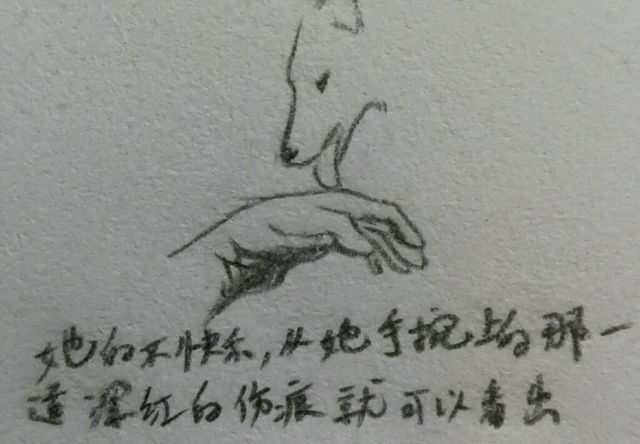 她的不快乐,从她手挽上的那一
道深红的伤痕就可以看出